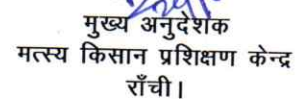 मुख्य अनुदेशक
मत्स्य किसान प्रशिक्षण केन्द्र
राँची।